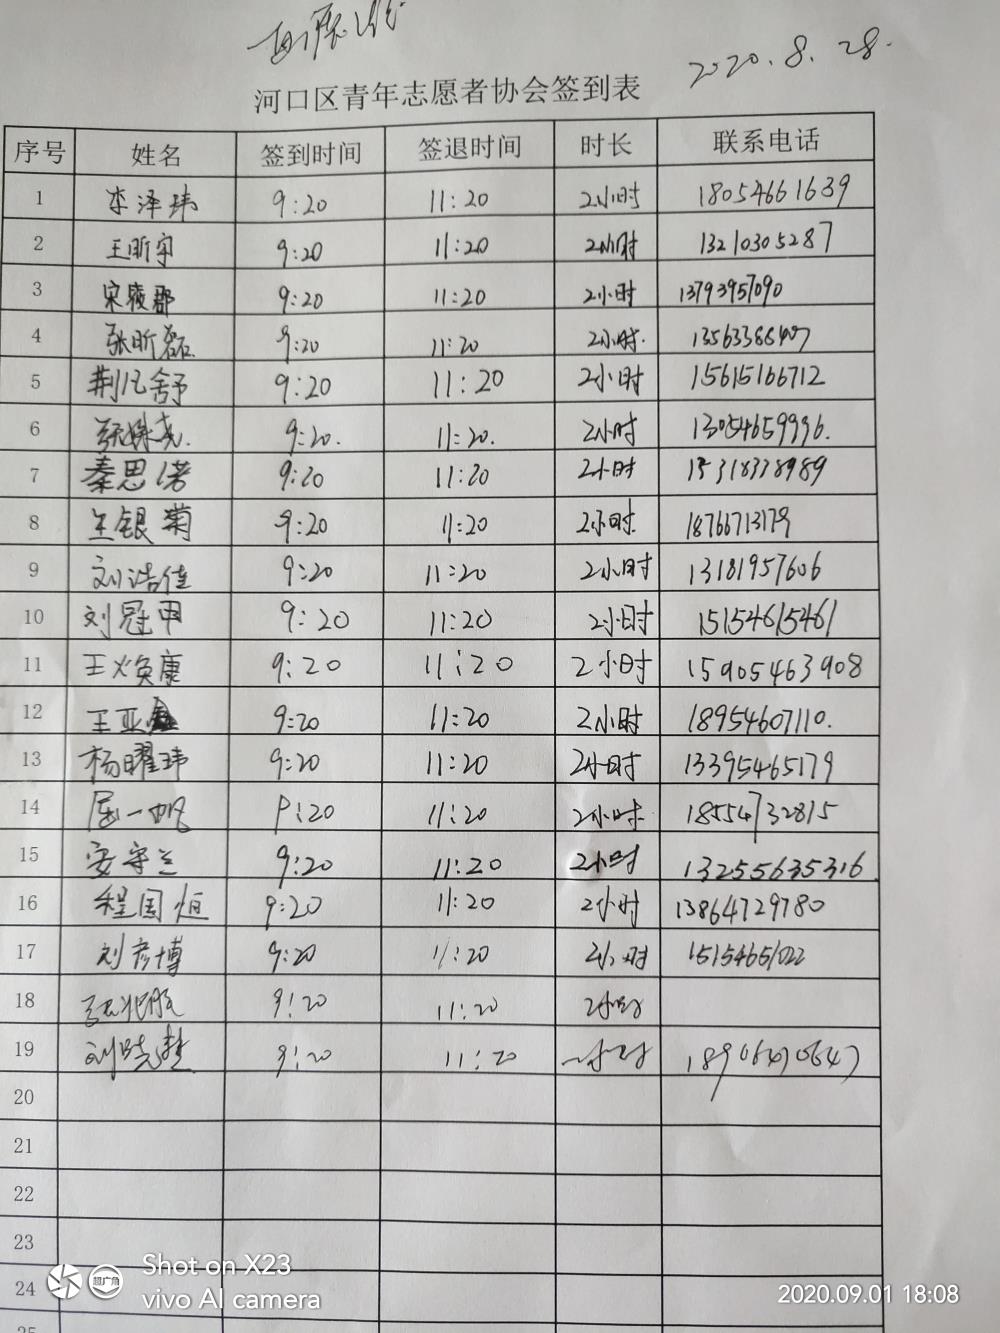 2020.8.28.
河口区青年志愿者协会签到表
序号 姓名 签到时间 签退时间 时长 联系电话
1 李泽玮 9:20 11:20 2小时 18054661639
2 王昕宇 9:20 11:20 2小时 13210305287
3 宋 9:20 11:20 2小时 13793957090
4 张昕磊 9:20 11:20 2小时.
5 荆凡舒 9:20 11:20 2小时 15615166712
6 张 9:20. 11:20. 2小时 13054659996.
7 秦思诺 9:20 11:20 2小时 15318338989
8 王银菊 9:20 11:20 2小时. 18766713179
9 刘浩佳 9:20 11:20 2小时 13181957606
10 刘冠甲 9:20 11:20 2小时 15154615461
11 王焕康 9:20 11:20 2小时 15905463908
12 王亚 9:20 11:20 2小时 18954607110.
13 杨曜玮 9:20 11:20 2小时 13395465179
14 屈一帆 9:20 11:20 2小时 18554732815
15 安守兰 9:20 11:20 2小时 13255635316
16 程国恒 9:20 11:20 2小时 13864729780
17 刘彦博 9:20 11:20 2小时 15154651022
18 9:20 11:20 2小时
19 刘晓慧 9:20 11:20 18906470647
20
21
22
23
24
Shot on X23
vivo AI camera
超广角
2020.09.01 18:08